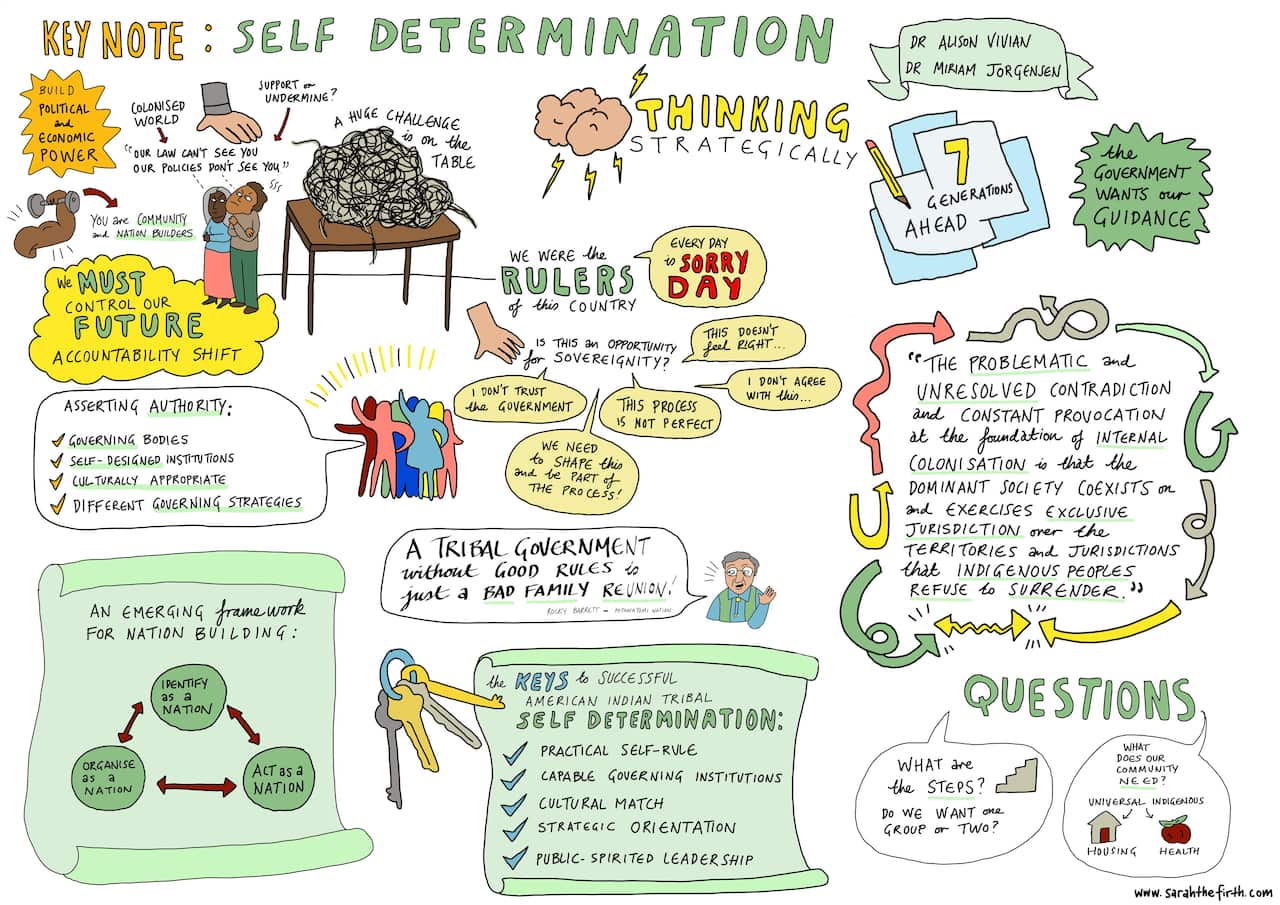 KEY NOTE: SELF DETERMINATION
DR ALISON VIVIAN
DR MIRIAM JORGENSEN
BUILD
POLITICAL
and
ECONOMIC
POWER
COLONISED
WORLD
SUPPORT or
UNDERMINE?
"OUR LAW CAN'T SEE YOU
OUR POLICIES DON'T SEE YOU"
SSS
YOU are COMMUNITY
and NATION BUILDERS
A HUGE CHALLENGE
is on the
TABLE
THINKING
STRATEGICALLY
7
GENERATIONS
AHEAD
the
GOVERNMENT
WANTS our
GUIDANCE
We MUST
CONTROL OUR
FUTURE
ACCOUNTABILITY SHIFT
WE WERE the
RULERS
of this COUNTRY
EVERY DAY
is SORRY
DAY
IS THIS AN OPPORTUNITY
for SOVEREIGNITY?
THIS DOESN'T
feel RIGHT...
I DON'T TRUST
the GOVERNMENT
THIS PROCESS
IS NOT PERFECT
I DON'T AGREE
WITH this...
WE NEED
to SHAPE this
and be PART of
THE PROCESS!
ASSERTING AUTHORITY:
GOVERNING BODIES
SELF-DESIGNED INSTITUTIONS
CULTURALLY APPROPRIATE
DIFFERENT GOVERNING STRATEGIES
"THE PROBLEMATIC and
UNRESOLVED CONTRADICTION
and CONSTANT PROVOCATION
at the foundation of INTERNAL
COLONISATION is that the
DOMINANT SOCIETY COEXISTS on
and EXERCISES EXCLUSIVE
JURISDICTION over the
TERRITORIES and JURISDICTIONS
that INDIGENOUS PEOPLES
REFUSE to SURRENDER."
A TRIBAL GOVERNMENT
without GOOD RULES is
just a BAD FAMILY REUNION!
ROCKY BARRETT - POTAWATOMI NATION
AN EMERGING framework
FOR NATION BUILDING:
IDENTIFY
as a
NATION
ORGANISE
as a
NATION
ACT as a
NATION
the KEYS to SUCCESSFUL
AMERICAN INDIAN TRIBAL
SELF DETERMINATION:
PRACTICAL SELF-RULE
CAPABLE GOVERNING INSTITUTIONS
CULTURAL MATCH
STRATEGIC ORIENTATION
PUBLIC-SPIRITED LEADERSHIP
QUESTIONS
WHAT are
the STEPS?
DO WE WANT one
GROUP or TWO?
WHAT
DOES OUR
COMMUNITY
NEED?
UNIVERSAL INDIGENOUS
HOUSING HEALTH
www.sarahthefirth.com